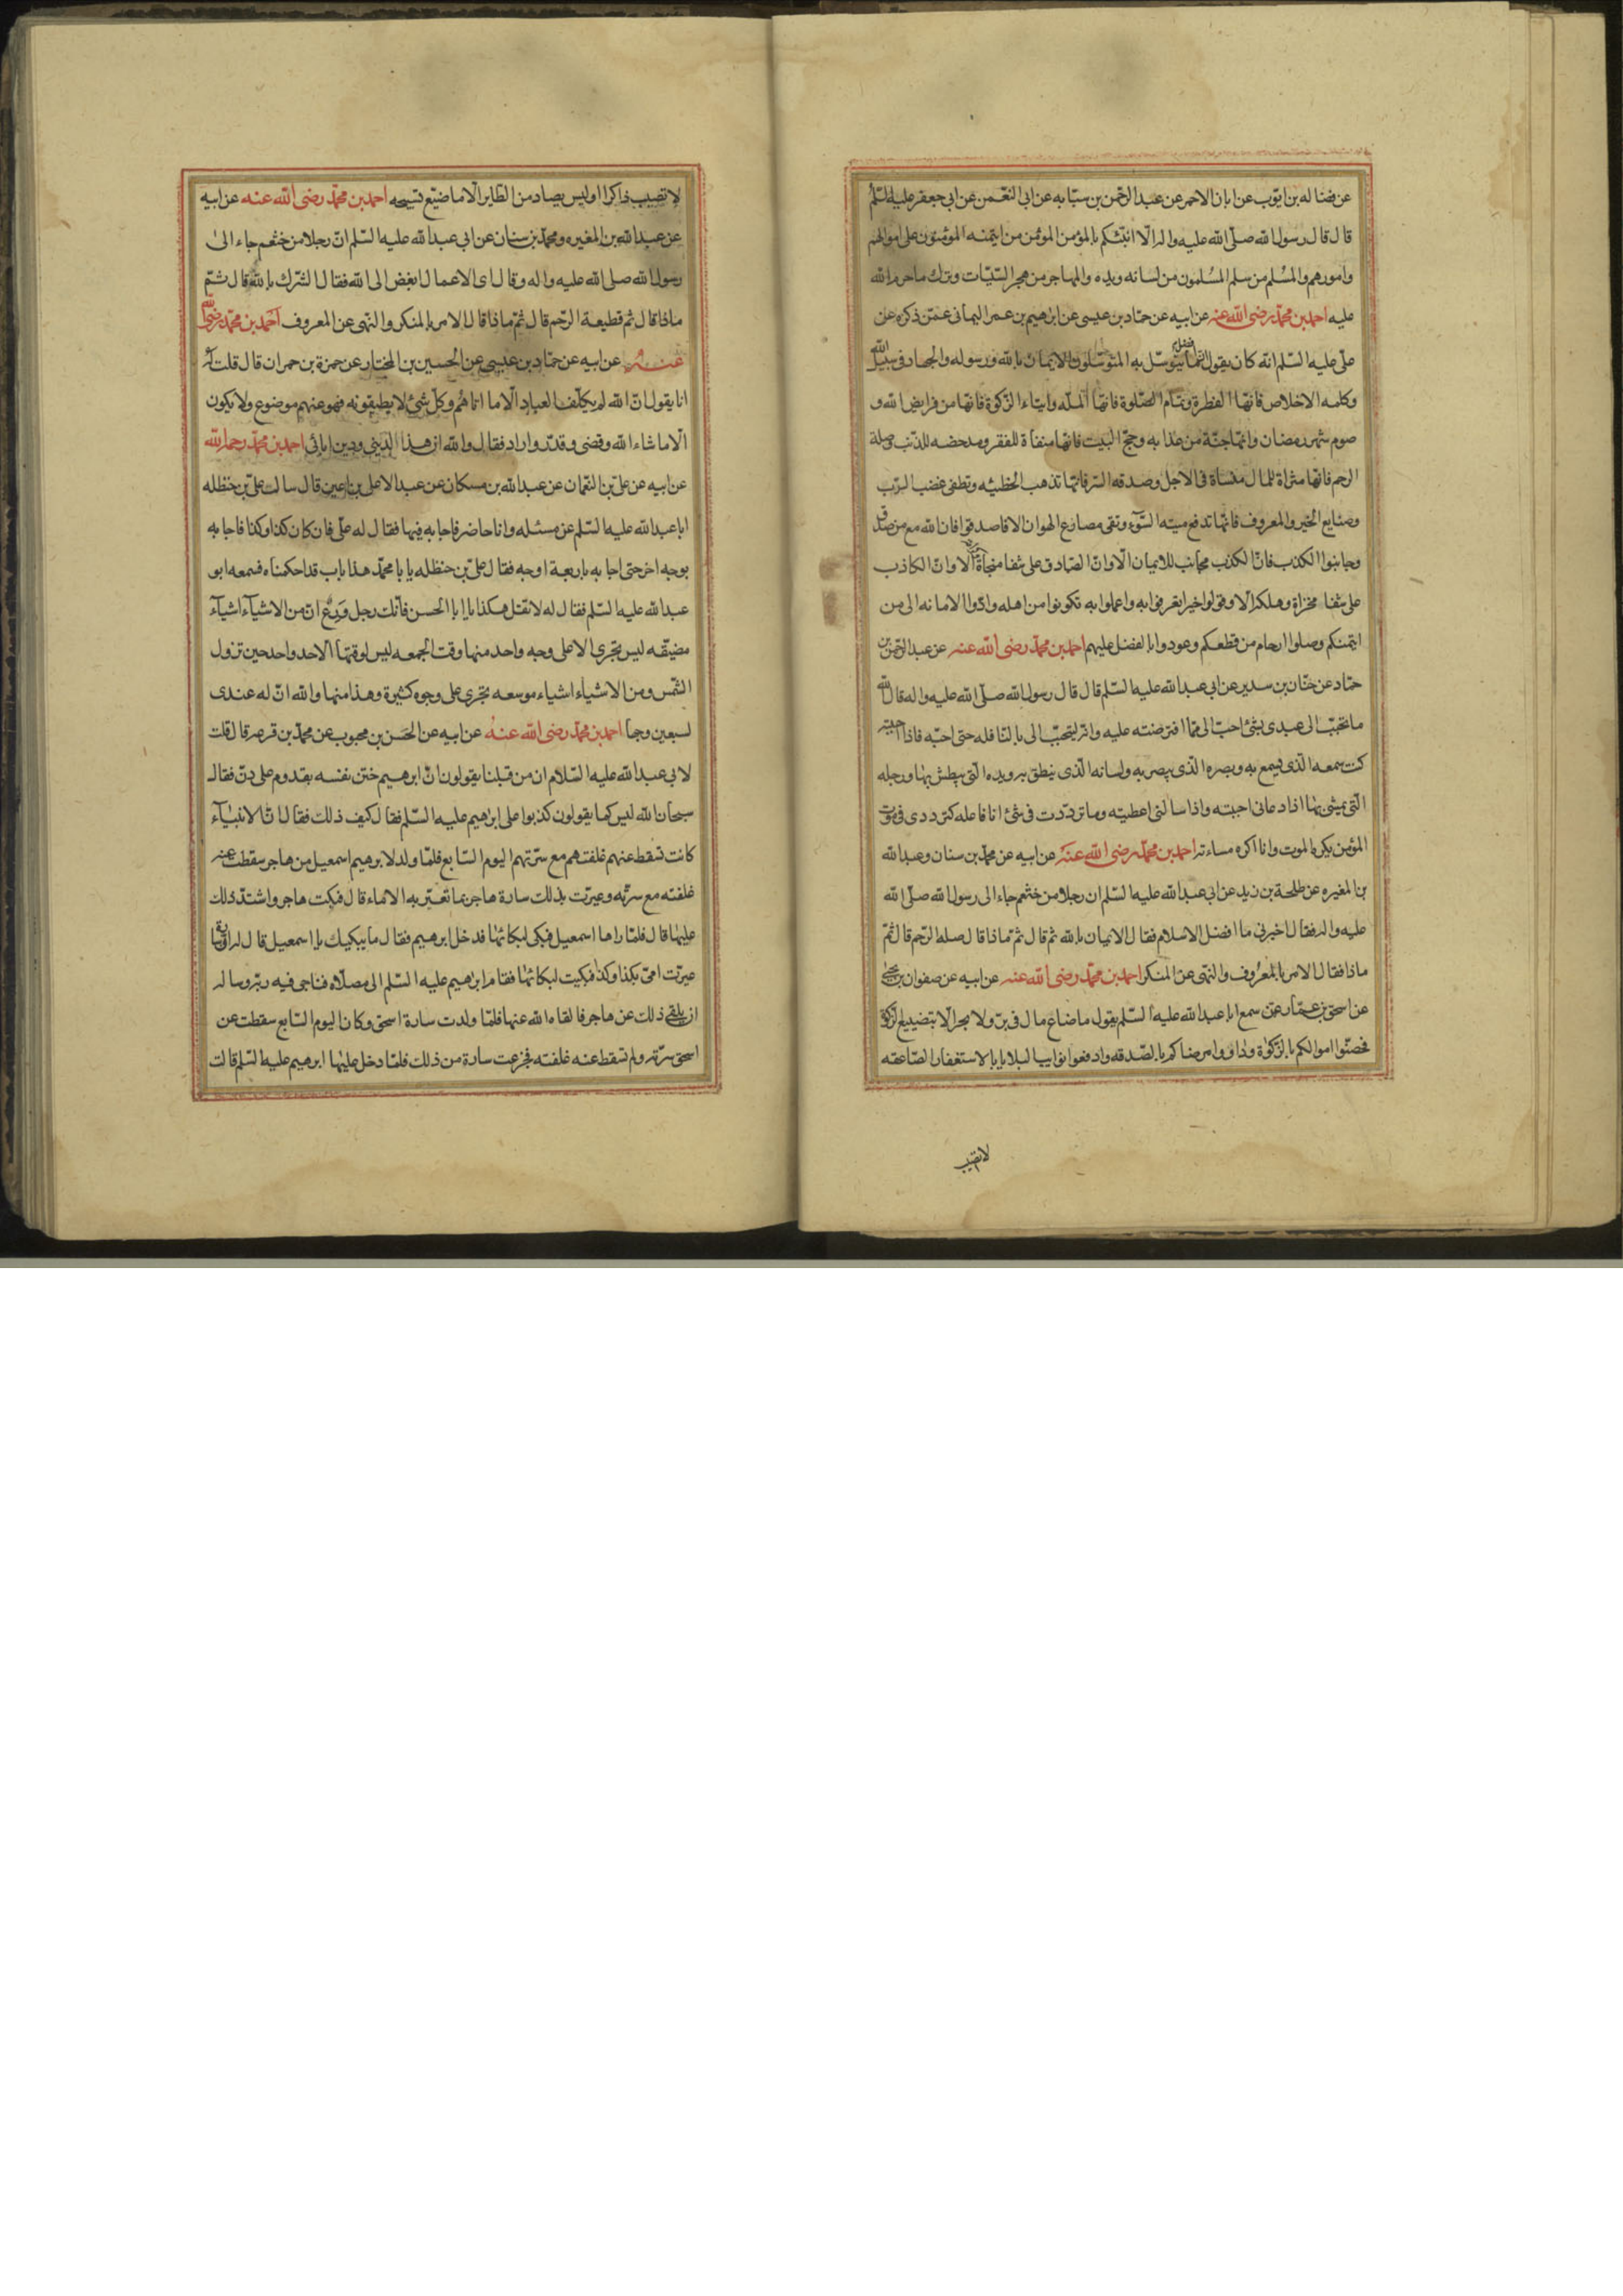 عن فضاله بن ايوب عن ابان الاحمر عن عبد الرحمن بن سيابه عن ابى النعمن عن ابى جعفر عليه السلم
قال قال رسول الله صلى الله عليه واله الا انبئكم بالمؤمن المؤمن من ايتمنه المومنون على اموالهم
وامورهم والمسلم من سلم المسلمون من لسانه ويده والمهاجر من هجر السيئات وترك ما حرم الله
عليه احمد بن محمد رضى الله عنه عن ابيه عن حماد بن عيسى عن ابرهيم بن عمر اليمانى عمن ذكره عن
على عليه السلم انه كان يقول افضل ما يتوسل به المتوسلون الايمان بالله ورسوله والجهاد فى سبيل الله
وكلمه الاخلاص فانها الفطرة وتمام الصلوة فانها الملة وايتاء الزكوة فانها من فرايض الله و
صوم شهر رمضان وانها جنة من عذابه وحج البيت فانها منفاة للفقر ومدحضه للذنب وصلة
الرحم فانها مثراة للمال منساة فى الاجل وصدقه السر فانها تذهب الخطيئه وتطفى غضب الرب
وصنايع الخير والمعروف فانها تدفع ميته السوء وتقى مصارع الهوان الا فاصدقوا فان الله مع من صدق
وجانبوا الكذب فان الكذب مجانب للايمان الا وان الصادق على شفا منجاة الا وان الكاذب
على شفا مخزاة وهلكه الا وقولوا خيرا تعرفوا به واعملوا به تكونوا من اهله وادوا الامانه الى من
ايتمنكم وصلوا ارحام من قطعكم وعودوا بالفضل عليهم احمد بن محمد رضى الله عنه عن عبد الرحمن بن
حماد عن حنان بن سدير عن ابى عبد الله عليه السلم قال قال رسول الله صلى الله عليه واله قال الله
ما تحبب الى عبدى بشئ احب الى مما افترضته عليه وانه ليتحبب الى بالنافله حتى احبه فاذا احببته
كنت سمعه الذى يسمع به وبصره الذى يبصر به ولسانه الذى ينطق به ويده التى يبطش بها ورجله
التى يمشى بها اذا دعانى اجبته واذا سالنى اعطيته وما ترددت فى شئ انا فاعله كترددى فى موت
المؤمن يكره الموت وانا اكره مساءته احمد بن محمد رضى الله عنه عن ابيه عن محمد بن سنان وعبد الله
بن المغيره عن طلحة بن زيد عن ابى عبد الله عليه السلم ان رجلا من خثعم جاء الى رسول الله صلى الله
عليه واله فقال اخبرنى ما افضل الاسلام فقال الايمان بالله ثم قال ثم ماذا قال صلة الرحم قال ثم
ماذا فقال الامر بالمعروف والنهى عن المنكر احمد بن محمد رضى الله عنه عن ابيه عن صفوان بن يحيى
عن اسحق بن عمار عمن سمع ابا عبد الله عليه السلم يقول ما ضاع مال فى بر ولا بحر الا بتضييع الزكوة
فحصنوا اموالكم بالزكوة وداووا مرضاكم بالصدقه وادفعوا نوايب البلايا بالاستغفار الصاعقه
لا تصيب
لا تصيب ذاكرا وليس يصاد من الطاير الا ما ضيع تسبيحه احمد بن محمد رضى الله عنه عن ابيه
عن عبد الله بن المغيره ومحمد بن سنان عن ابى عبد الله عليه السلم ان رجلا من خثعم جاء الى
رسول الله صلى الله عليه واله وقال اى الاعمال ابغض الى الله فقال الشرك بالله قال ثم
ماذا قال ثم قطيعة الرحم قال ثم ماذا قال الامر بالمنكر والنهى عن المعروف احمد بن محمد رضى الله
عنه عن ابيه عن حماد بن عيسى عن الحسين بن المختار عن حمزة بن حمران قال قلت له
انا يقول ان الله لم يكلف العباد الا ما اتاهم وكل شئ لا يطيقونه فهو عنهم موضوع ولا يكون
الا ما شاء الله وقضى وقدر واراد فقال والله ان هذا لدينى ودين ابائى احمد بن محمد رحمه الله
عن ابيه عن على بن النعمان عن عبد الله بن مسكان عن عبد الاعلى بن اعين قال سالت على بن حنظله
ابا عبد الله عليه السلم عن مسئله وانا حاضر فاجابه فيها فقال له على فان كان كذا وكذا فاجابه
بوجه اخر حتى اجابه باربعة اوجه فقال على بن حنظله يا با محمد هذا باب قد احكمناه فسمعه ابو
عبد الله عليه السلم فقال له لا تقل هكذا يا ابا الحسن فانك رجل ورع ان من الاشياء اشياء
مضيقه ليس تجرى الا على وجه واحد منها وقت الجمعه ليس لوقتها الا حد واحد حين تزول
الشمس ومن الاشياء اشياء موسعه تجرى على وجوه كثيرة وهذا منها والله ان له عندى
لسبعين وجها احمد بن محمد رضى الله عنه عن ابيه عن الحسن بن محبوب عن محمد بن قزعه قال قلت
لابى عبد الله عليه السلام ان من قبلنا يقولون ان ابرهيم ختن نفسه بقدوم على دن فقال
سبحان الله ليس كما يقولون كذبوا على ابرهيم عليه السلم فقال كيف ذلك فقال ان الانبياء
كانت تسقط عنهم غلفتهم مع سررتهم اليوم السابع فلما ولد لابرهيم اسمعيل من هاجر سقطت عنه
غلفته مع سرته وعيرت بذلك سارة هاجر بما تعير به الاماء قال فبكت هاجر واشتد ذلك
عليها قال فلما راها اسمعيل فبكى لبكائها فدخل ابرهيم فقال ما يبكيك يا اسمعيل قال ان سارة
عيرت امى بكذا وكذا فبكيت لبكائها فقام ابرهيم عليه السلم الى مصلاه فناجى فيه ربه وساله
ان يلقى ذلك عن هاجر فالقاه الله عنها فلما ولدت سارة اسحق وكان اليوم السابع سقطت عن
اسحق سرته ولم تسقط عنه غلفته فجزعت سارة من ذلك فلما دخل عليها ابرهيم عليه السلم قالت